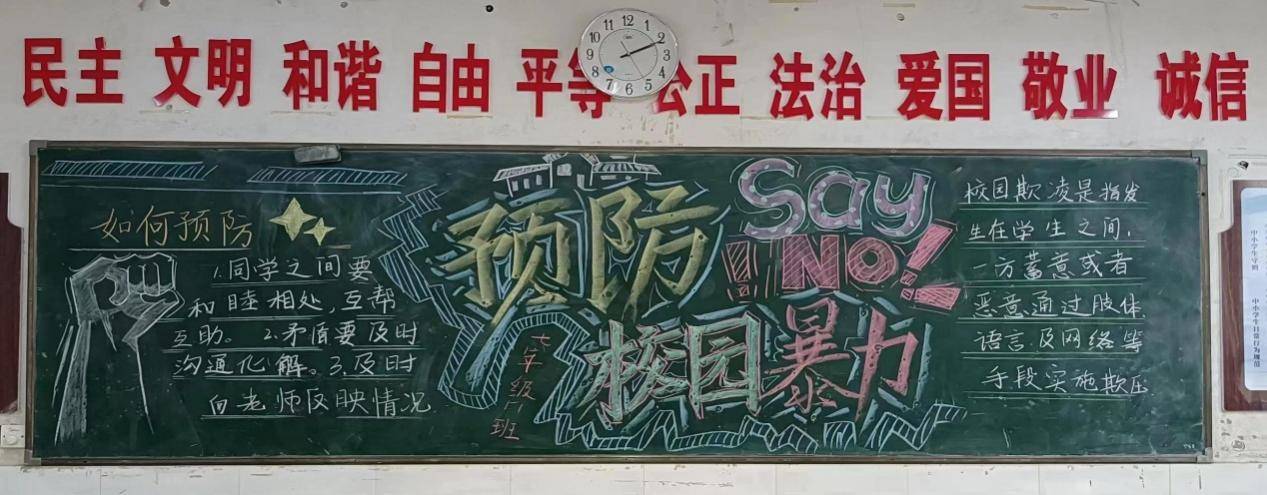 民主 文明 和谐 自由 平等 公正 法治 爱国 敬业 诚信
12
1
2
3
4
5
6
7
8
9
10
11
如何预防
1.同学之间要
和睦相处,互帮
互助。2.矛盾要及时
沟通化解。3.及时
向老师反映情况
预防
校园暴力
Say
NO!
七年级
班
校园欺凌是指发
生在学生之间,
一方蓄意或者
恶意通过肢体
语言及网络等
手段实施欺压
中小学生守则
中小学生日常行为规范